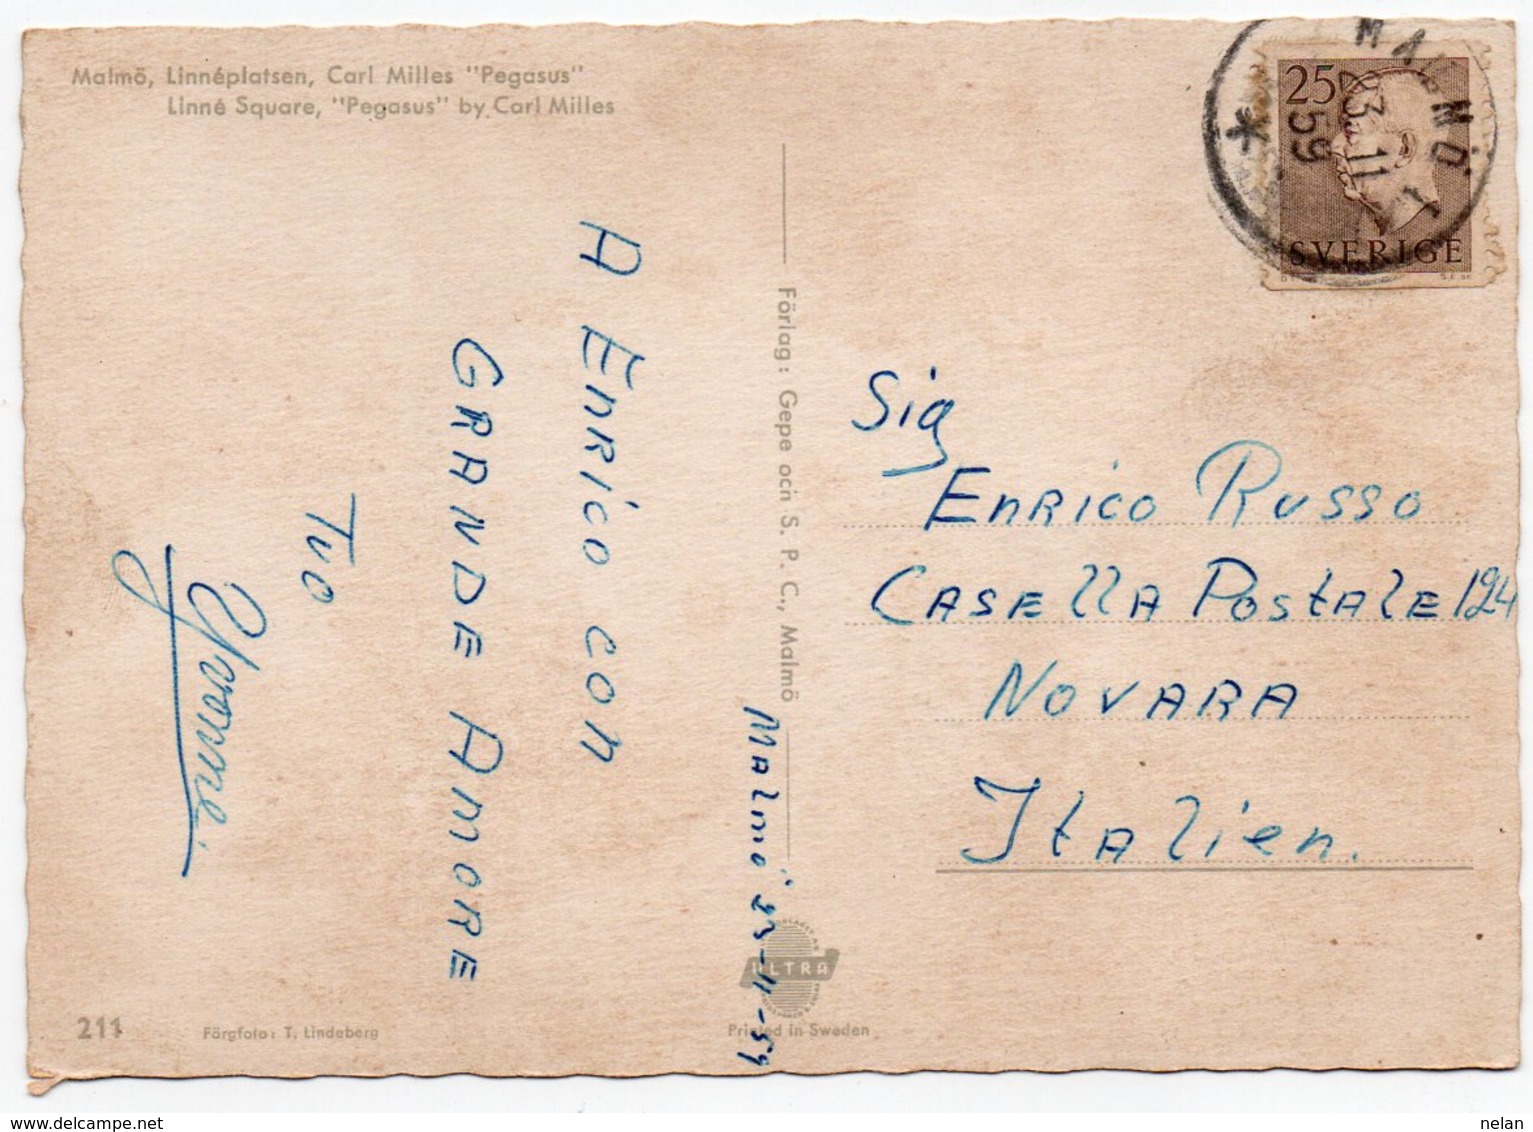 Malmö, Linnéplatsen, Carl Milles "Pegasus"
Linné Square, "Pegasus" by Carl Milles
MALMÖ 1
23 11
59
25
SVERIGE
A Enrico con
GRANDE AMORE
Tuo
Yvonne.
Malmö 23-11-59
Förlag: Gepe och S. P. C., Malmö
Sig
Enrico Russo
Casella Postale 124
NOVARA
Italien.
ULTRA
Printed in Sweden
211
Färgfoto: T. Lindeberg
delcampe.net
nelan